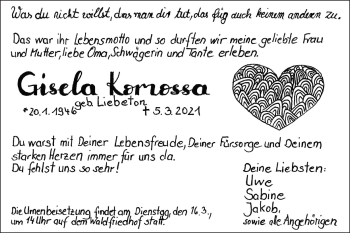 Was du nicht willst, das man dir tut, das füg auch keinem anderen zu.
Das war ihr Lebensmotto und so durften wir meine geliebte Frau
und Mutter, liebe Oma, Schwägerin und Tante erleben.
Gisela Komossa
geb. Liebeton
*20.1.1946 † 5.3.2021
Du warst mit Deiner Lebensfreude, Deiner Fürsorge und Deinem
starken Herzen immer für uns da.
Du fehlst uns so sehr!
Deine Liebsten:
Uwe
Sabine
Jakob,
sowie alle Angehörigen
Die Urnenbeisetzung findet am Dienstag, den 16.3.,
um 14 Uhr auf dem Waldfriedhof statt.